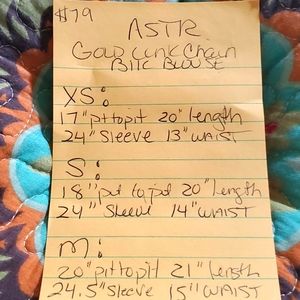 $79
ASTR
Gold Link Chain
Blk Blouse
XS:
17" pit to pit 20" length
24" Sleeve 13" WAIST
S:
18" pit to pit 20" length
24" Sleeve 14" WAIST
M:
20" pit to pit 21" length
24.5" Sleeve 15" WAIST